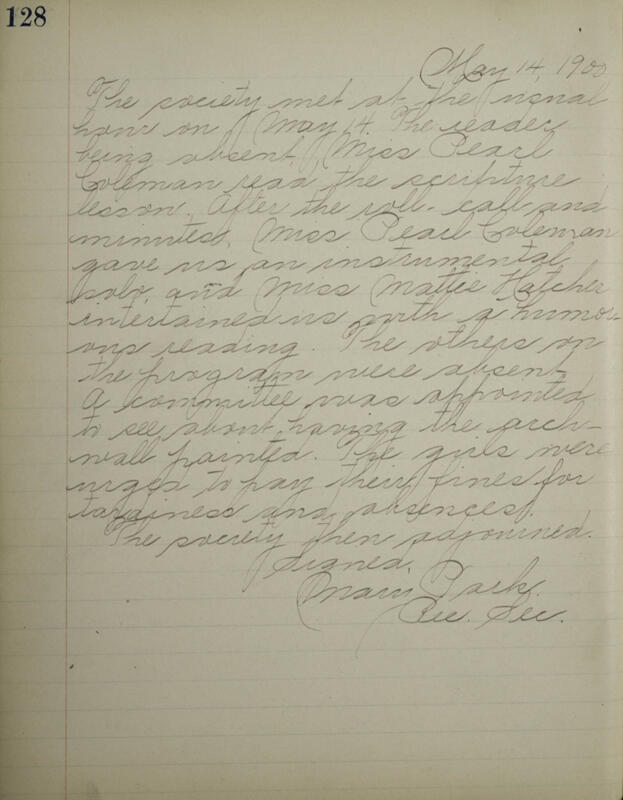 128
May 14, 1900
The society met at the usual
hour on May 14. The reader
being absent, Miss Pearl
Coleman read the scripture
lesson. After the roll-call and
minutes, Miss Pearl Coleman
gave us an instrumental
solo, and Miss Mattie Hatcher
entertained us with a humor-
ous reading. The others on
the program were absent.
A committee was appointed
to see about having the arch-
wall painted. The girls were
urged to pay their fines for
tardiness and absences.
The society then adjourned.
Signed,
Mary Park.
Rec. Sec.